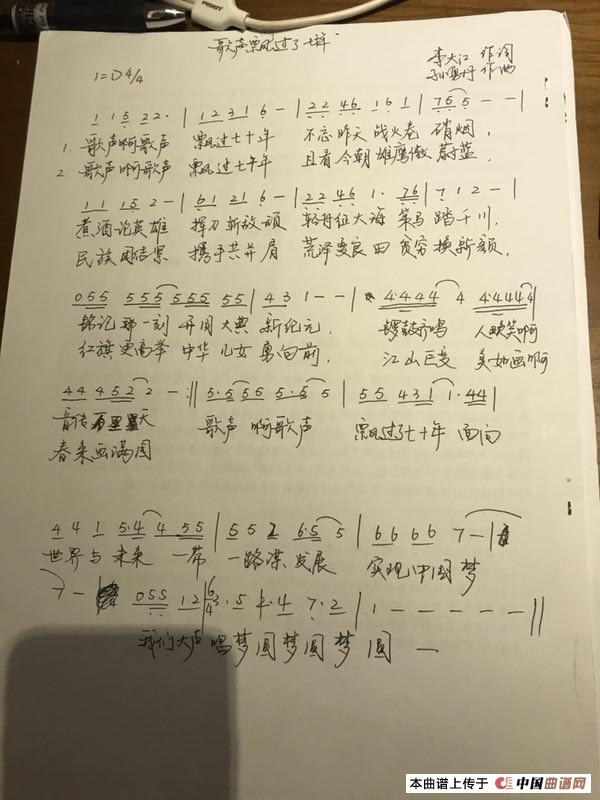 歌声飘过了七十年
李大江 作词
作曲
1=D 4/4
1 1 5 2 2 · | 1 2 3 1 6 - | 2 2 4 6 1 6 1 | 7 6 5 - - |
1. 歌声啊歌声 飘过七十年 不忘昨天 战火卷 硝烟,
2. 歌声啊歌声 飘过七十年 且看今朝 雄鹰傲 蔚蓝,
1 1 1 5 2 - | 6 1 2 1 6 - | 2 2 4 6 1 · 7 6 | 7 1 2 - |
煮酒论英雄 挥刀斩敌顽 轻舟征大海 策马踏千川,
民族团结紧 携手共并肩 荒泽变良田 贫穷换新颜,
0 5 5 5 5 5 5 5 5 5 5 | 4 3 1 - - | 4·4 4 4 4 4·4 4 4 4 |
铭记那一刻 开国大典 新纪元, 锣鼓齐鸣 人欢笑啊
红旗更高举 中华儿女 勇向前, 江山巨变 美如画啊
4 4 4 5 2 2 - :|| 5·5 5 5 5·5 5 | 5 5 4 3 1 1·4 4 |
音传 天 歌声 啊歌声 飘过了七十年 面向
春来画满园
4 4 1 5·4 4 5 5 | 5 5 2 6·5 5 | 6 6 6 6 7 - |
世界与未来 一带 一路谋发展 实现中国梦
7 - 0 5 5 1 2 | 6/4 3·5 2·4 7·2 | 1 - - - - - ||
我们大声 唱梦圆梦圆梦 圆 —
本曲谱上传于 中国曲谱网